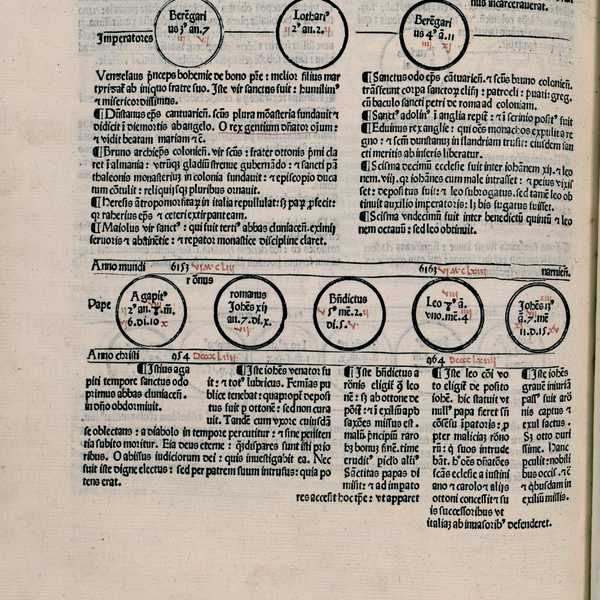 nus incarcerauerat.
Imperatores
Berẽgari
us 3⁹ an. 7
Lotbari⁹
2⁹ an. 2.
Berẽgari
us 4⁹ ã. 11
Venzelaus p̃nceps bohemie de bono pr̃e: melior filius mar
ab iniquo fratre suo. Iste vir sanctus fuit: humilim⁹
et misericordissimus.
¶Dũstanus ep̃s cantuarieñ. scũs plura mõasteria fundauit et
didicit diemortis ab angelo. O rex gentium dñator oĩum:
et vidit beatam mariam etc̃.
¶Bruno archiep̃s colonieñ. vir scũs: frater ottonis p̃mi cla
ret ĩ almania: vtrũqz gladiũ strenue gubernãdo: et sancti pã
thaleonis monasteriuz in colonia fundauit: et episcopio duca
tum cõtulit: reliquijsqz pluribus ornauit.
¶Heresis ãtropomorfitaꝝ in italia repullulat: sz paꝝ p̃fecit:
qz raherius ep̃s et ceteri extirpant eam.
¶Maiolus vir sanct⁹: qui fuit terti⁹ abbas cluniaceñ. eximij
feruoris et abstinẽtie: et repator monastice discipline claret.
¶Sanctus odo ep̃s cãtuarieñ. et scũs bruno colonieñ.
transferunt corpa sanctoꝝ elifij: patrocli: puati: greg.
cũ baculo sancti petri de roma ad coloniam.
¶Sanct⁹ adolin⁹ ĩ anglia repit⁹: et ĩ scrinio posit⁹ fuit
¶Eduinus rex anglie: qui oẽs monachos expulit a re
gno: et scũm dunstanuz in flandriam trusit: eiusdem san
cti meritis ab inferis liberatur.
¶Scisma decimuz ecclesie fuit inter iohãnem xij. et leo
nem viij. qz iohãnes cum male intrasset: et peius vixis
set: depositus fuit: et leo subrogatus. sed tamẽ leo ob
tinuit auxilio imperatoris: lz bis fugatus fuisset.
¶Scisma vndecimuz fuit inter benedictũ quintũ et leo
nem octauũ: sed leo obtinuit.
Anno mundi 6153 6163
rõnus
narnieñ.
Pape
Agapit⁹
2⁹ an. x. m̃.
6. di. 10
romanus
Iohẽs xij
an. 7. di. x.
Bñdictus
5⁹ mẽ. 2.
di. 5.
Leo 8⁹ ã.
vno. mẽ. 4
Iohẽs 13⁹
ã. 7. mẽ
11. d. 15.
Anno christi 954 964
¶Istius aga
piti tempore sanctus odo
primus abbas cluniaceñ.
in dño obdormiuit.
¶Iste iohẽs venator fu
it: et tot⁹ lubricus. Femĩas pu
blice tenebat: quapropter deposi
tus fuit p ottonẽ: sed non cura
uit. Tandẽ cum vxore cuiusdã
se oblectans: a diabolo in tempore percutitur: et sine peniten
tia subito moritur. Eia deus eterne: q̃ dispares sunt isti prio
ribus. O abissus iudicioruz dei: quis inuestigabit ea. Nec
fuit iste digne electus: sed per patrem suum intrusus: quia po
tens erat.
¶Iste bñdictus a
rõnis eligit⁹ qz leo
nẽ: sz ab ottone de
põit⁹: et ĩ exiliũ ap̃
saxões missus est.
malũ p̃ncipiũ raro
hz bonuz finẽ. time
crudit⁹ picto alij⁹
Sãctitas papas di
misit: et ad impato
res accessit hoc tp̃e: vt apparet
¶Iste leo cõi vo
to eligit⁹ de posito
iohẽ. hic statuit vt
null⁹ papa fieret sñ
cõsẽsu ĩpatoris: p
pter maliciaz rõno
rũ: q̃ suos intrude
bãt. h⁹ oẽs dñatões
ecclesijs a iustini
ano et carolo et alijs
ottoni concessit et su
is successoribus vt
italiaz ab inuasorib⁹ defenderet.
¶Iste iohẽs
grauẽ iniuriã
pass⁹ fuit a rõ
nis captus et
exul factus.
Sz otto duri
ssime.
peculit: nobili
bus
et q̃busdam in
exiliũ missis.